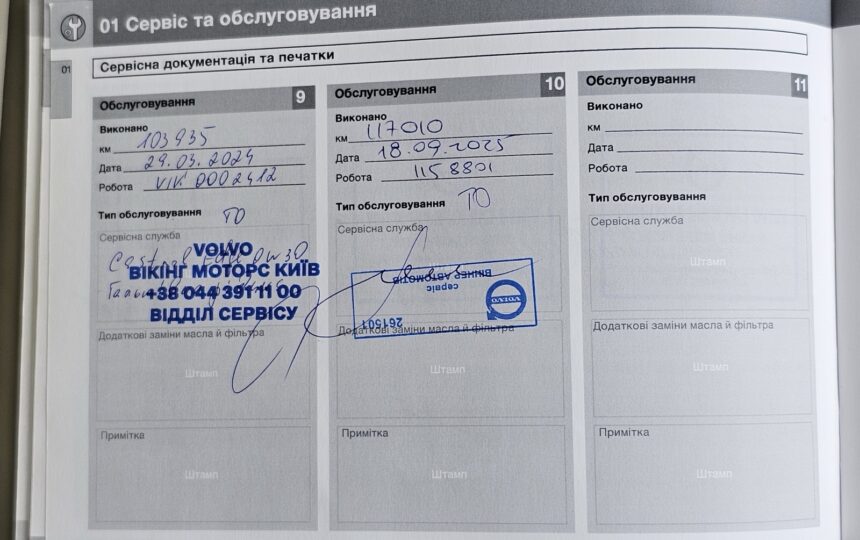 01 Сервіс та обслуговування
01
Сервісна документація та печатки
Обслуговування 9
Виконано
км 103935
Дата 29.03.2024
Робота VIK 0002412
Тип обслуговування ТО
Сервісна служба
Castrol Edge 0w30
VOLVO
ВІКІНГ МОТОРС КИЇВ
+38 044 391 11 00
ВІДДІЛ СЕРВІСУ
Додаткові заміни масла й фільтра
Штамп
Примітка
Штамп
Обслуговування 10
Виконано
км 117010
Дата 18.09.2025
Робота 1158801
Тип обслуговування ТО
Сервісна служба
ВІННЕР АВТОМОТІВ
сервіс
VOLVO
261501
Додаткові заміни масла й фільтра
Штамп
Примітка
Штамп
Обслуговування 11
Виконано
км
Дата
Робота
Тип обслуговування
Сервісна служба
Штамп
Додаткові заміни масла й фільтра
Штамп
Примітка
Штамп